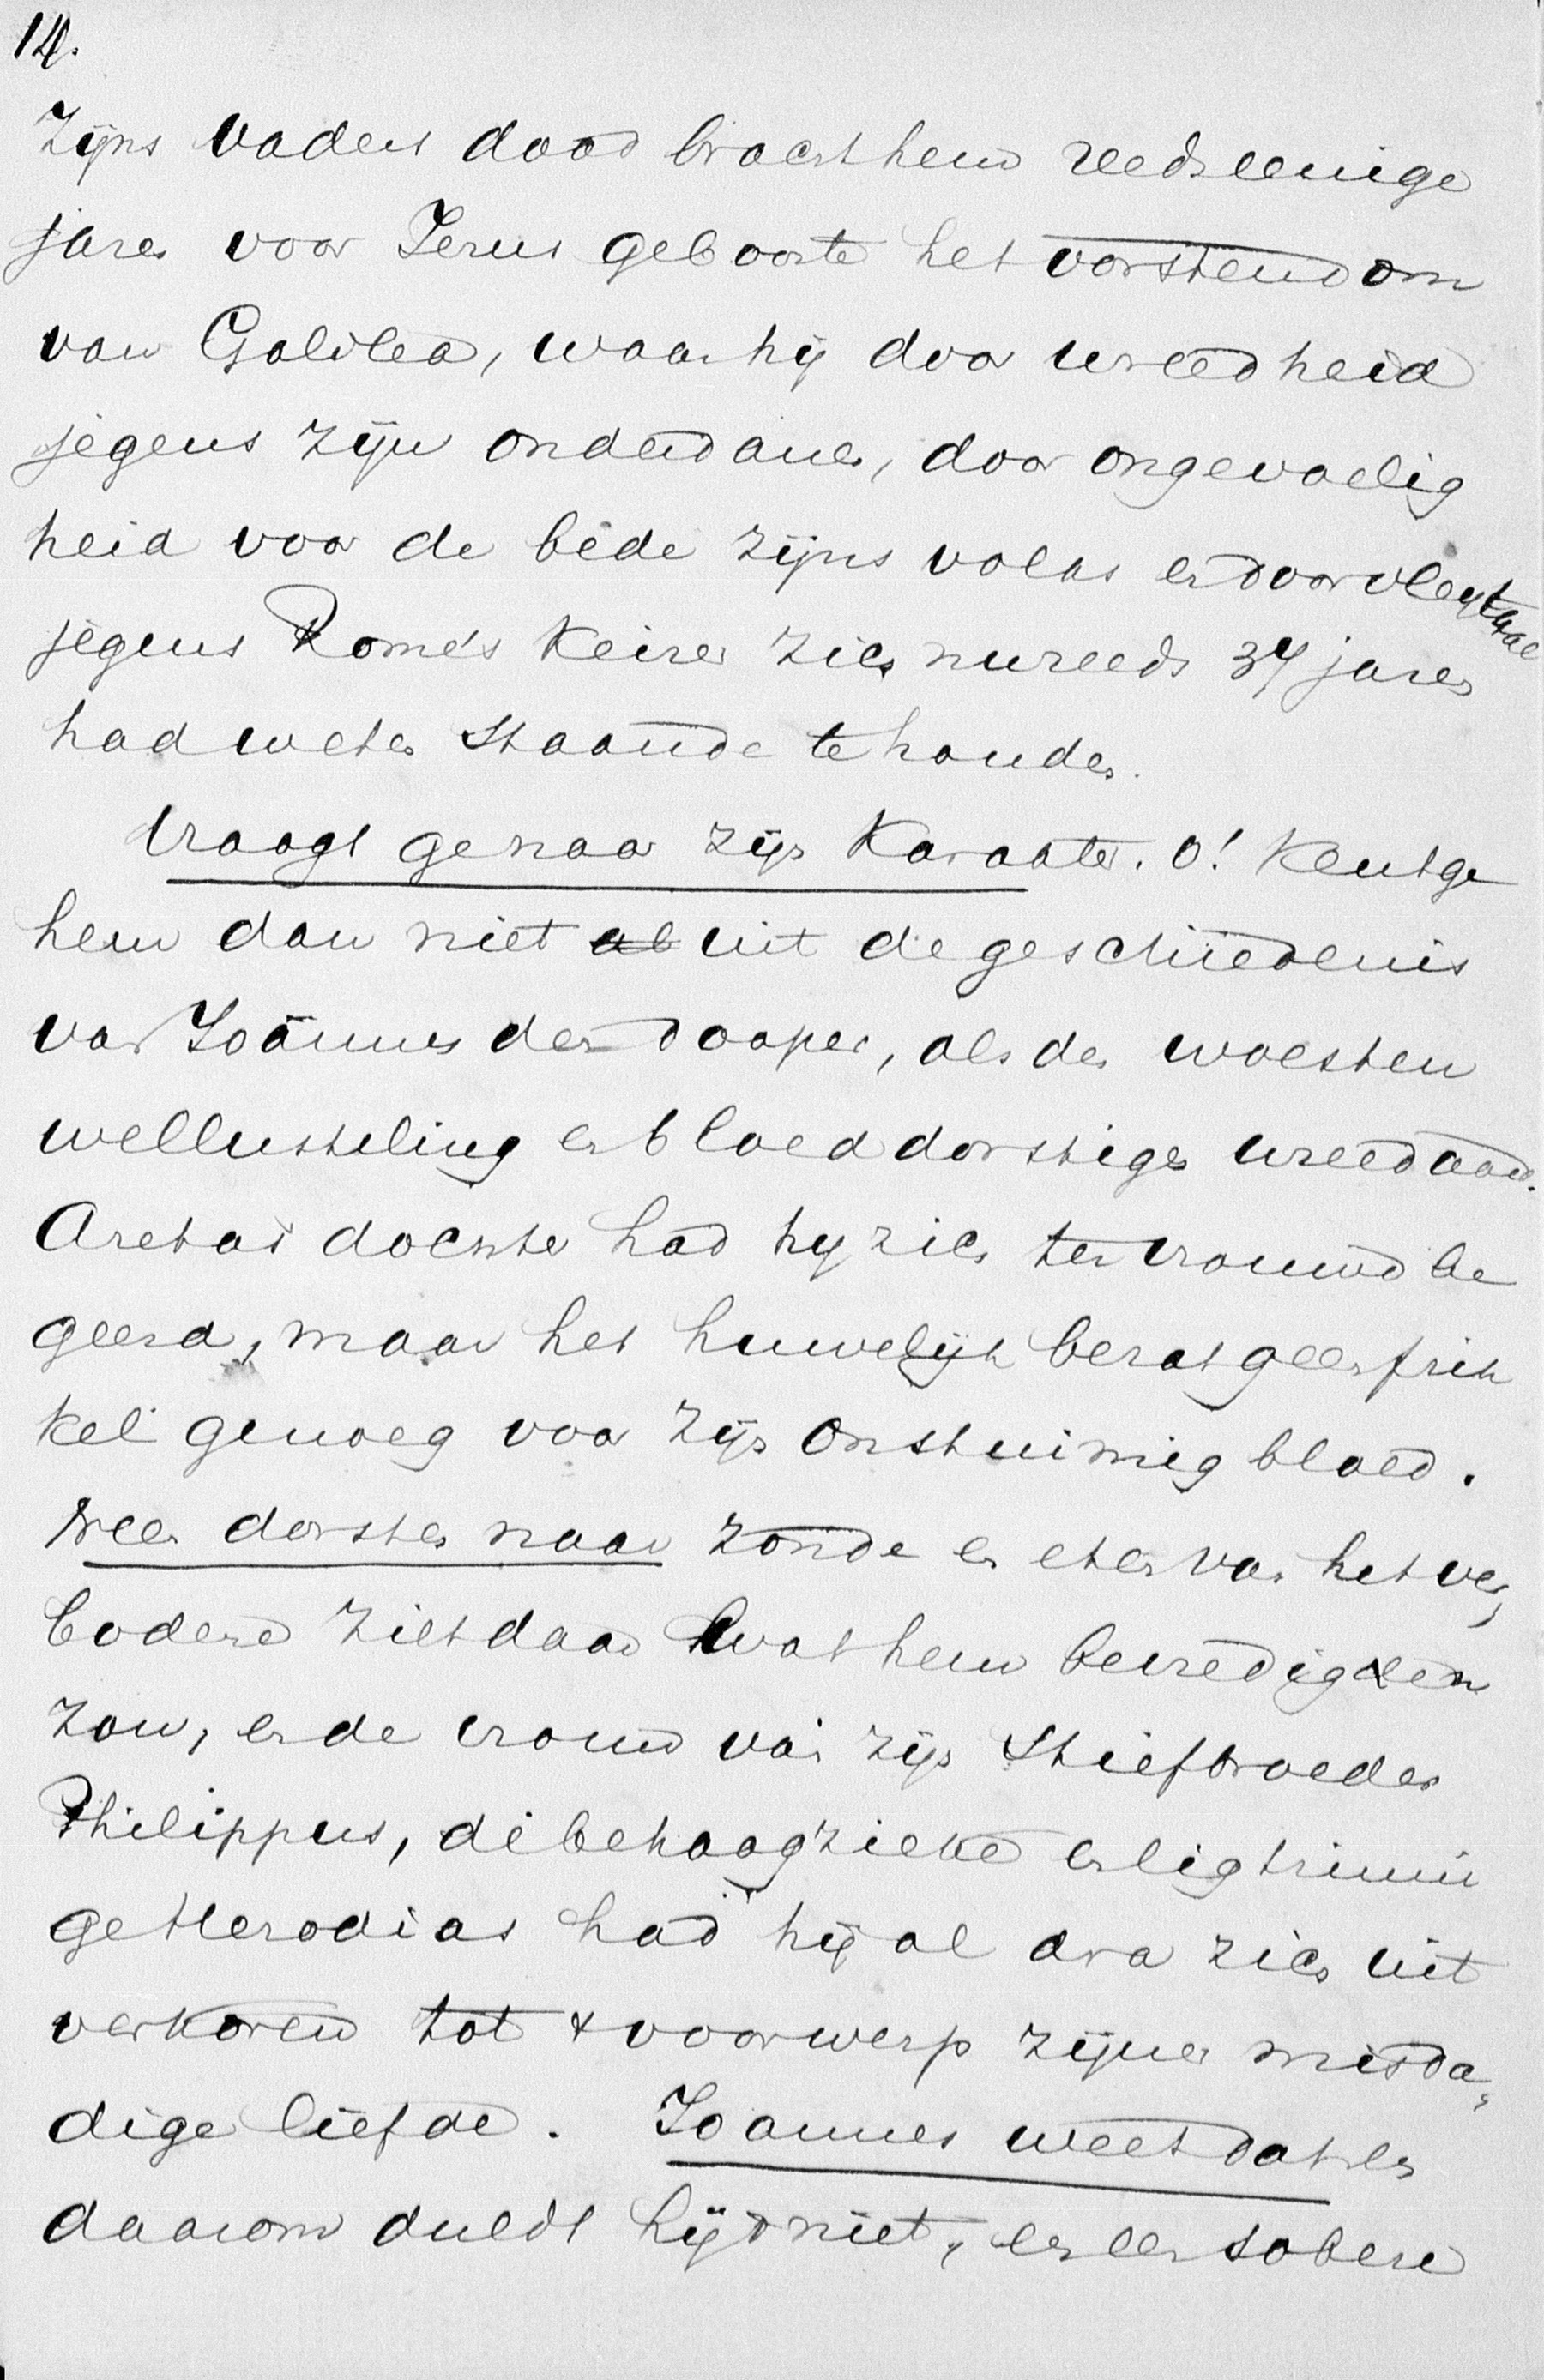 14.
Zijns vaders dood bracht hem reeds eenige
jaren voor Jesus geboorte het vorstendom
van Galilea, waar hij door wreedheid
jegens zijn onderdanen, door ongevoelig
heid voor de bede zijns volks en door vleytaal
jegens Rome's Keizer zich nu reeds 34 jaren
had weten staande te houden.
Vraagt ge naar zijn Karakter. O! Kent ge
hem dan niet al uit de geschiedenis
van Joännes den dooper, als den woesten
wellusteling en bloeddorstigen wreedaard.
Aretas dochter had hij zich ter vrouwe be
geerd, maar het huwelijk bezat geen prik
kel genoeg voor zijn onstuimig bloed.
Neen dorsten naar zonde en eten van het ver,
bodene ziet daar wat hem bevredigen
zou, en de vrouw van zijn stiefbroeder
Philippus, de behaagzieke en ligtzinni
ge Herodias had hij al dra zich uit
verkoren tot voorwerp zijner misda,
dige liefde. Joannes weet dat en
daarom duldt hij 't niet, en een sobere